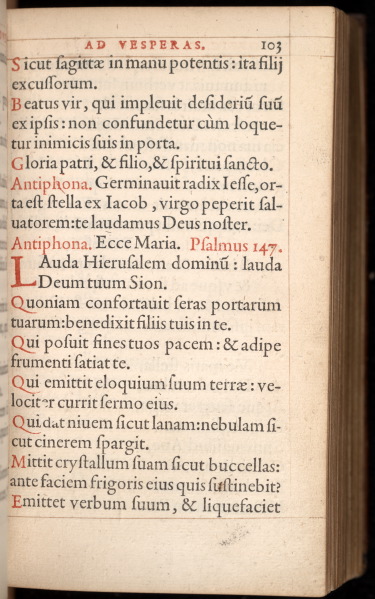 AD VESPERAS. 103
Sicut sagittæ in manu potentis: ita filij
excussorum.
Beatus vir, qui impleuit desideriũ suũ
ex ipsis: non confundetur cùm loque-
tur inimicis suis in porta.
Gloria patri, & filio, & spiritui sancto.
Antiphona. Germinauit radix Iesse, or-
ta est stella ex Iacob, virgo peperit sal-
uatorem: te laudamus Deus noster.
Antiphona. Ecce Maria. Psalmus 147.
LAuda Hierusalem dominũ: lauda
Deum tuum Sion.
Quoniam confortauit seras portarum
tuarum: benedixit filiis tuis in te.
Qui posuit fines tuos pacem: & adipe
frumenti satiat te.
Qui emittit eloquium suum terræ: ve-
lociter currit sermo eius.
Qui dat niuem sicut lanam: nebulam si-
cut cinerem spargit.
Mittit crystallum suam sicut buccellas:
ante faciem frigoris eius quis sustinebit?
Emittet verbum suum, & liquefaciet